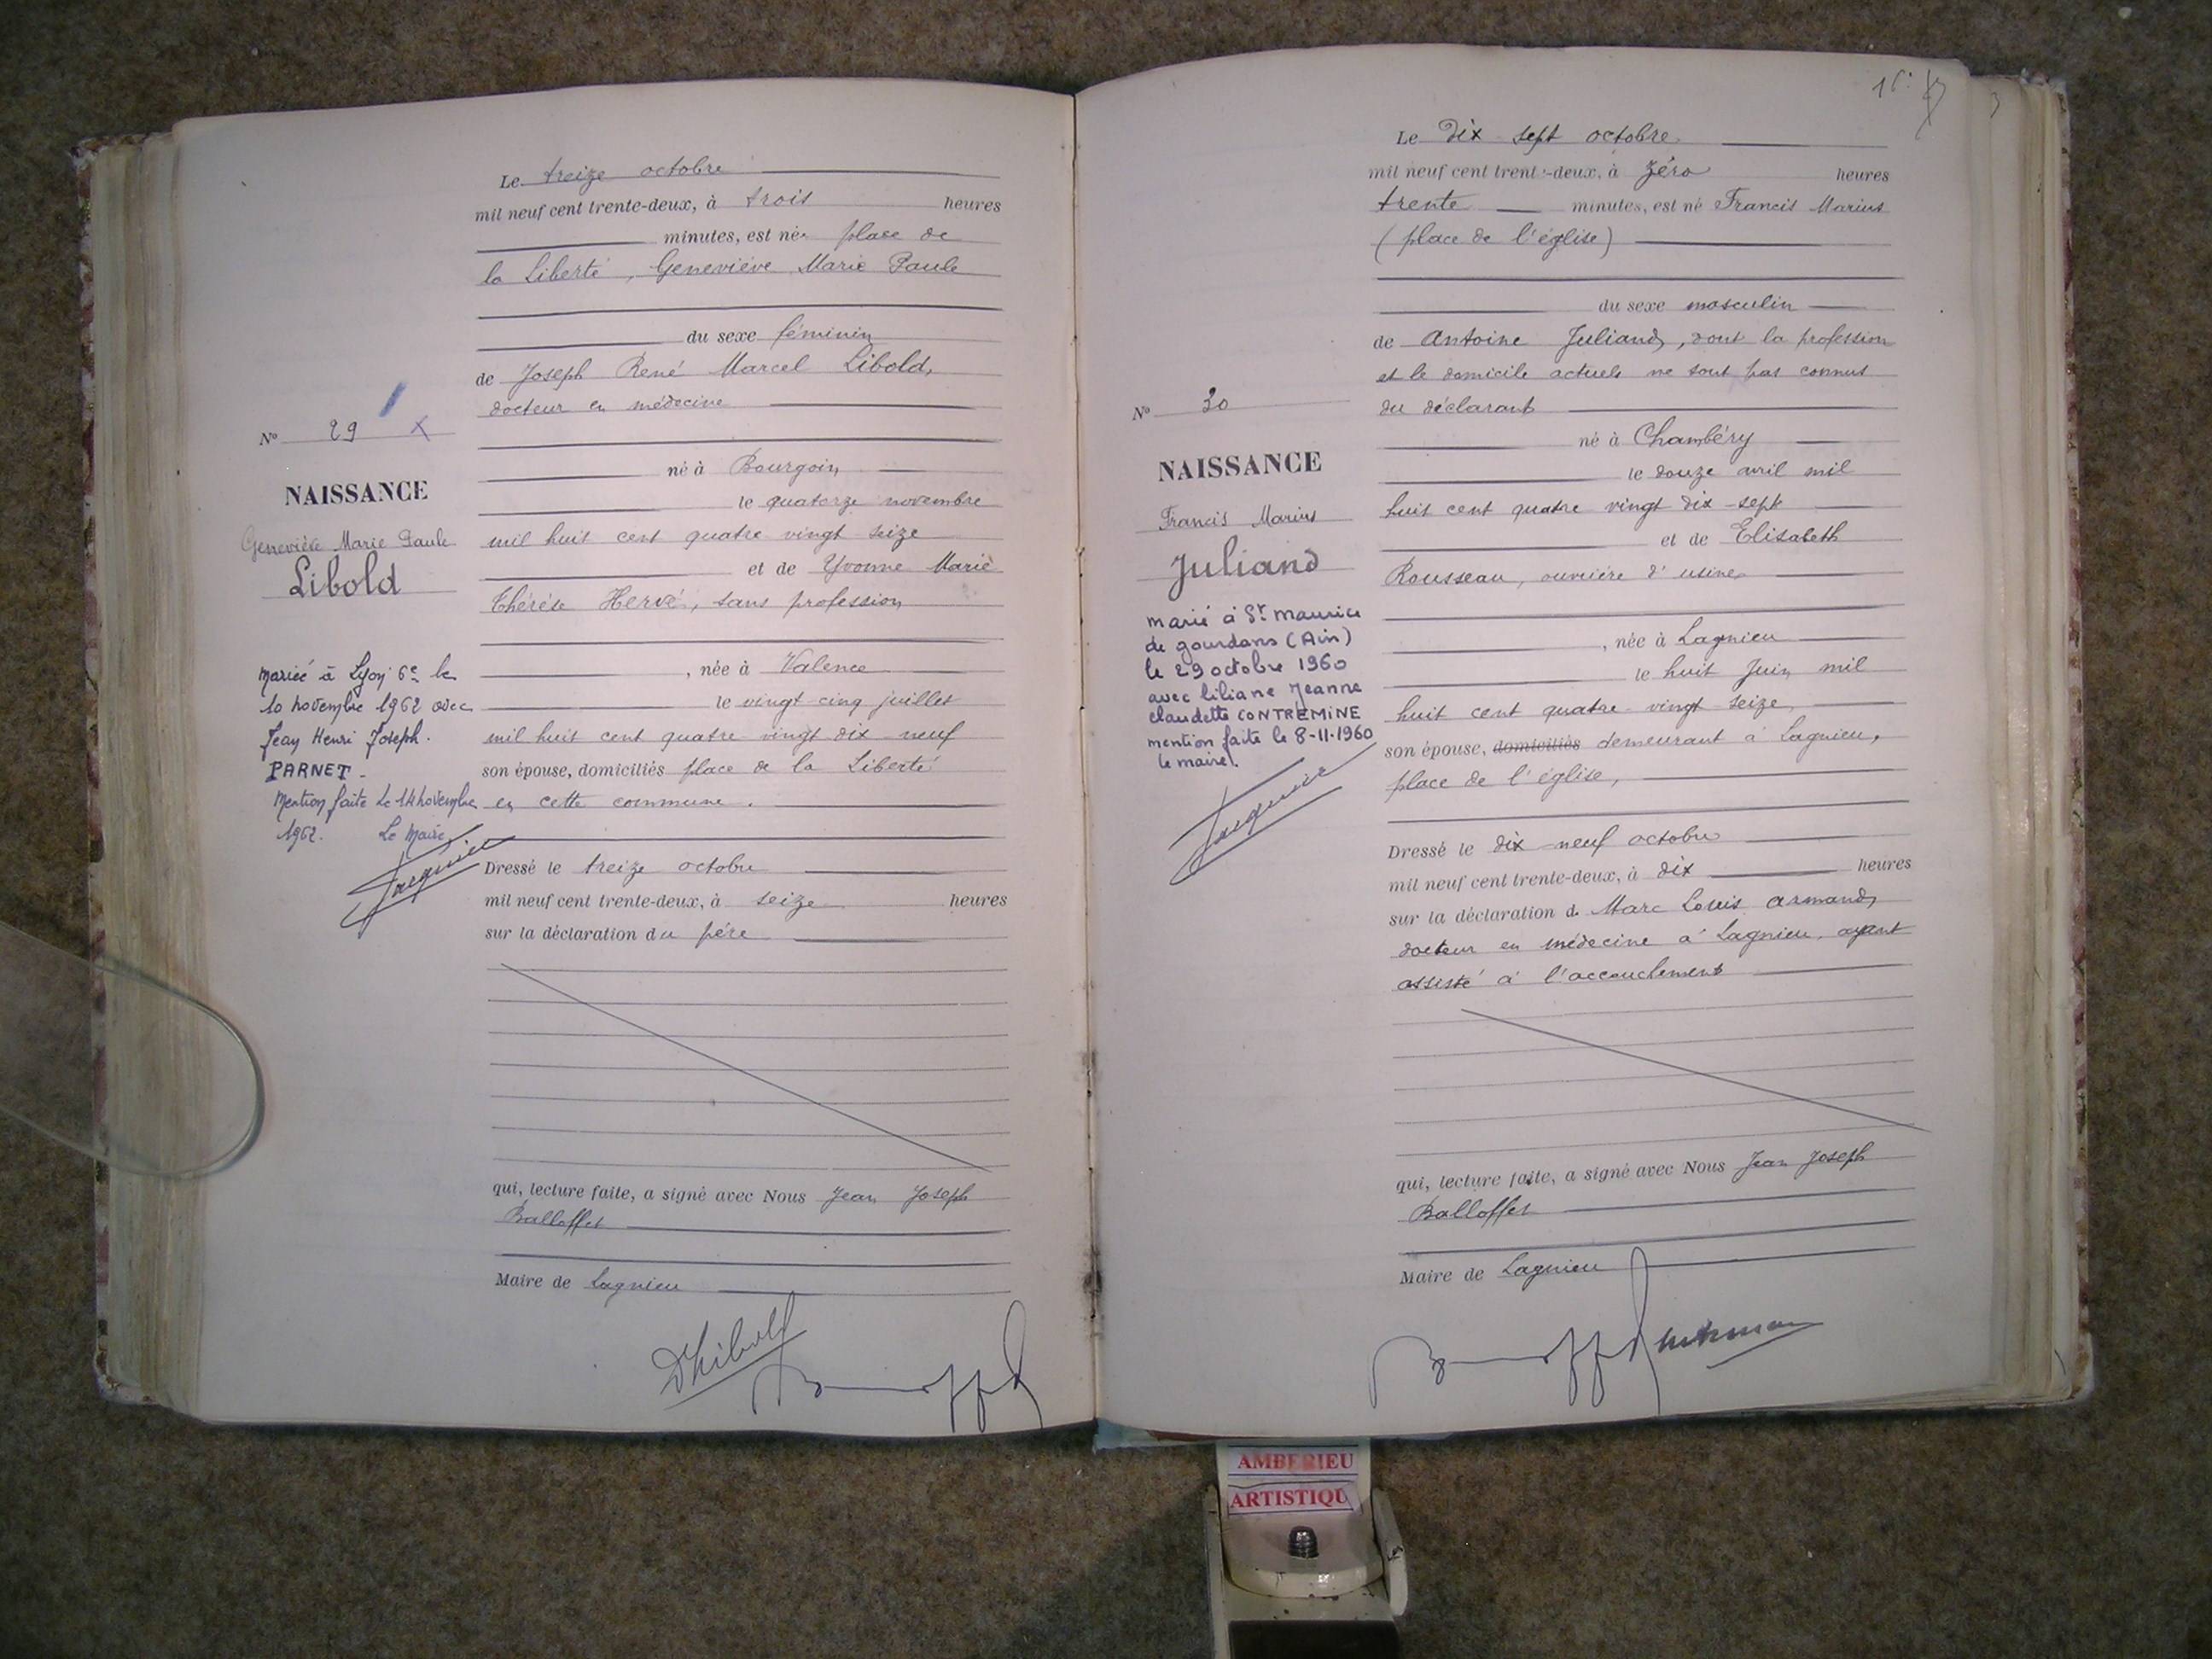 Le treize octobre
mil neuf cent trente-deux, à trois heures
minutes, est née place de
la Liberté, Geneviève Marie Paule
du sexe féminin
de Joseph René Marcel Libold,
docteur en médecine
né à Bourgoin
le quatorze novembre
mil huit cent quatre vingt seize
et de Yvonne Marie
Thérèse Hervé, sans profession
, née à Valence
le vingt-cinq juillet
mil huit cent quatre-vingt dix-neuf
son épouse, domiciliés place de la Liberté
en cette commune.
Dressé le treize octobre
mil neuf cent trente-deux, à seize heures
sur la déclaration du père
qui, lecture faite, a signé avec Nous Jean Joseph
Balloffet
Maire de Lagnieu
N° 29
NAISSANCE
Geneviève Marie Paule
Libold
Mariée à Lyon 6e le
10 novembre 1962 avec
Jean Henri Joseph.
PARNET -
Mention faite le 14 novembre
1962. Le Maire
Le Dix sept octobre
mil neuf cent trente-deux, à Zéro heures
trente minutes, est né Francis Marius
(place de l'église)
du sexe masculin
de Antoine Juliand, dont la profession
et le domicile actuels ne sont pas connus
du déclarant
né à Chambéry
le douze avril mil
huit cent quatre vingt dix-sept
et de Elisabeth
Rousseau, ouvrière d'usine
, née à Lagnieu
le huit Juin mil
huit cent quatre-vingt-seize,
son épouse, domiciliés demeurant à Lagnieu,
place de l'église,
Dressé le dix-neuf octobre
mil neuf cent trente-deux, à dix heures
sur la déclaration de Marc Louis Armand,
docteur en médecine à Lagnieu, ayant
assisté à l'accouchement
qui, lecture faite, a signé avec Nous Jean Joseph
Balloffet
Maire de Lagnieu
N° 30
NAISSANCE
Francis Marius
Juliand
marié à St Maurice
de gourdans (Ain)
le 29 octobre 1960
avec liliane Jeanne
claudette CONTREMINE
mention faite le 8-11-1960
le maire.
AMBERIEU
ARTISTIQU